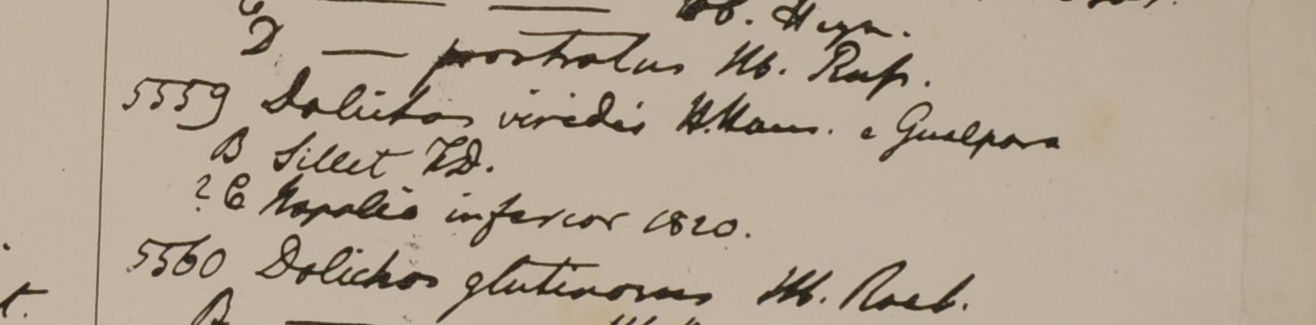 Hb. Heyn.
D — prostratus Hb. Russ.
5559 Dolichos viridis H.Ham. e Gualpara
B Sillet FD.
? C Napalia inferior 1820.
5560 Dolichos glutinosus Hb. Roxb.
B —
t.